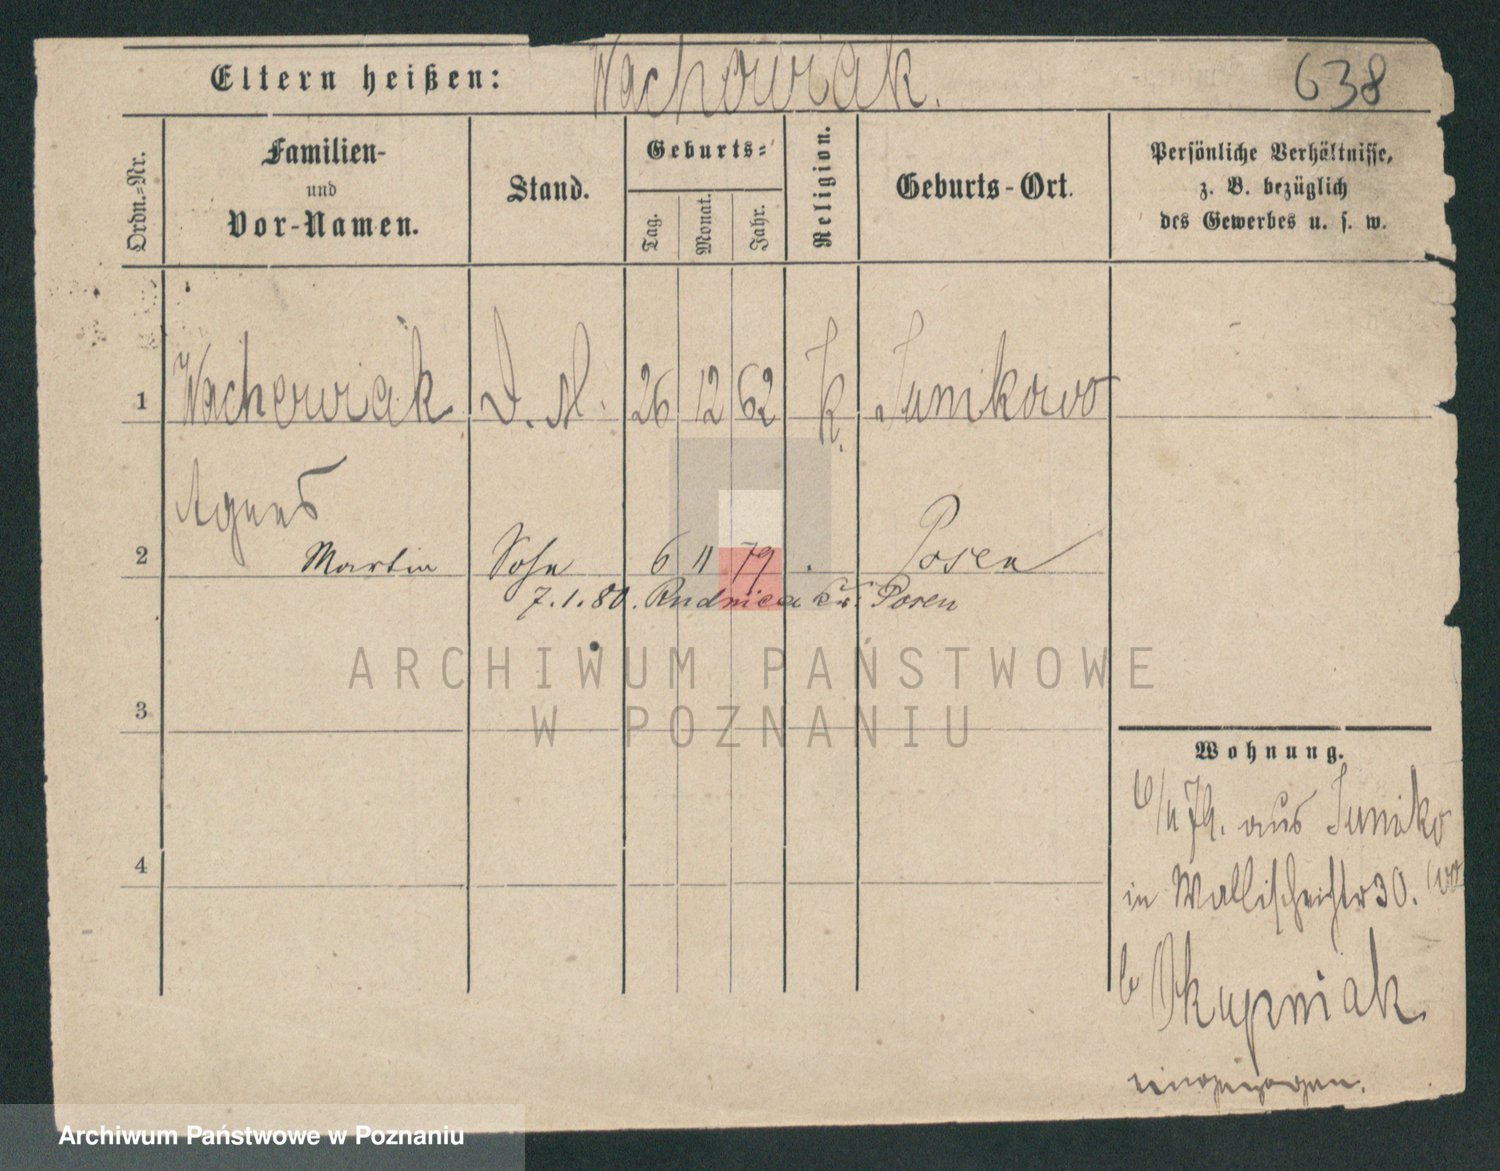 Eltern heißen: Wachowiak. 638
Ordn.-Nr.
Familien-
und
Vor-Namen.
Stand.
Geburts-
Tag.
Monat.
Jahr.
Religion.
Geburts-Ort.
Persönliche Verhältnisse,
z. B. bezüglich
des Gewerbes u. s. w.
1 Wachowiak D. M. 26 12 62 k. Junikowo
Agnes
2 Martin Sohn 6 11 79 Posen
7.1.80. Rudnicza Kr. Posen
ARCHIWUM PAŃSTWOWE
W POZNANIU
3
4
Wohnung.
6/11 79. aus Juniko
wo
in Wallischeistr 30.
b Skupniak
eingezogen.
Archiwum Państwowe w Poznaniu